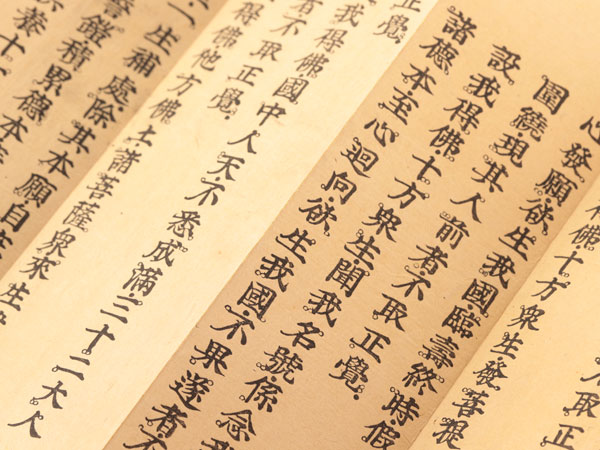 取正
佛十方衆生發菩提
心發願欲生我國臨壽終時假
圍繞現其人前者不取正覺
設我得佛十方衆生聞我名號係念我
諸德本至心迴向欲生我國不果遂者不
正覺
我得佛國中人天不悉成滿三十二大人
不取正覺
得佛他方佛土諸菩薩衆來生
一生補處除其本願自
鎧積累德本
養十